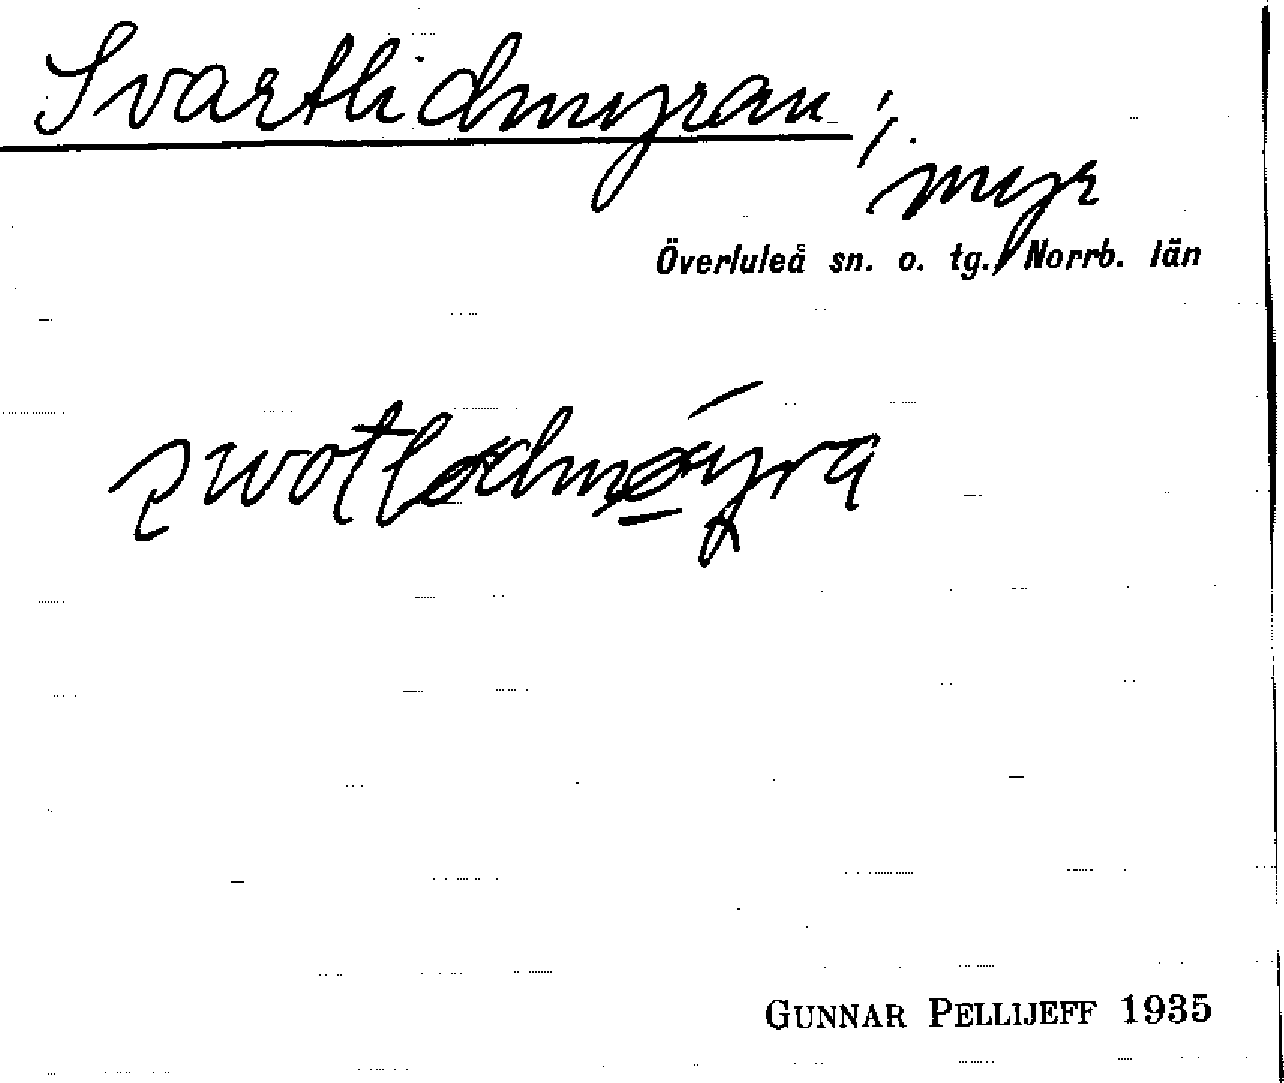 Svartlidmyran ; myr
Överluleå sn. o. tg., Norrb. län
GUNNAR PELLIJEFF 1935